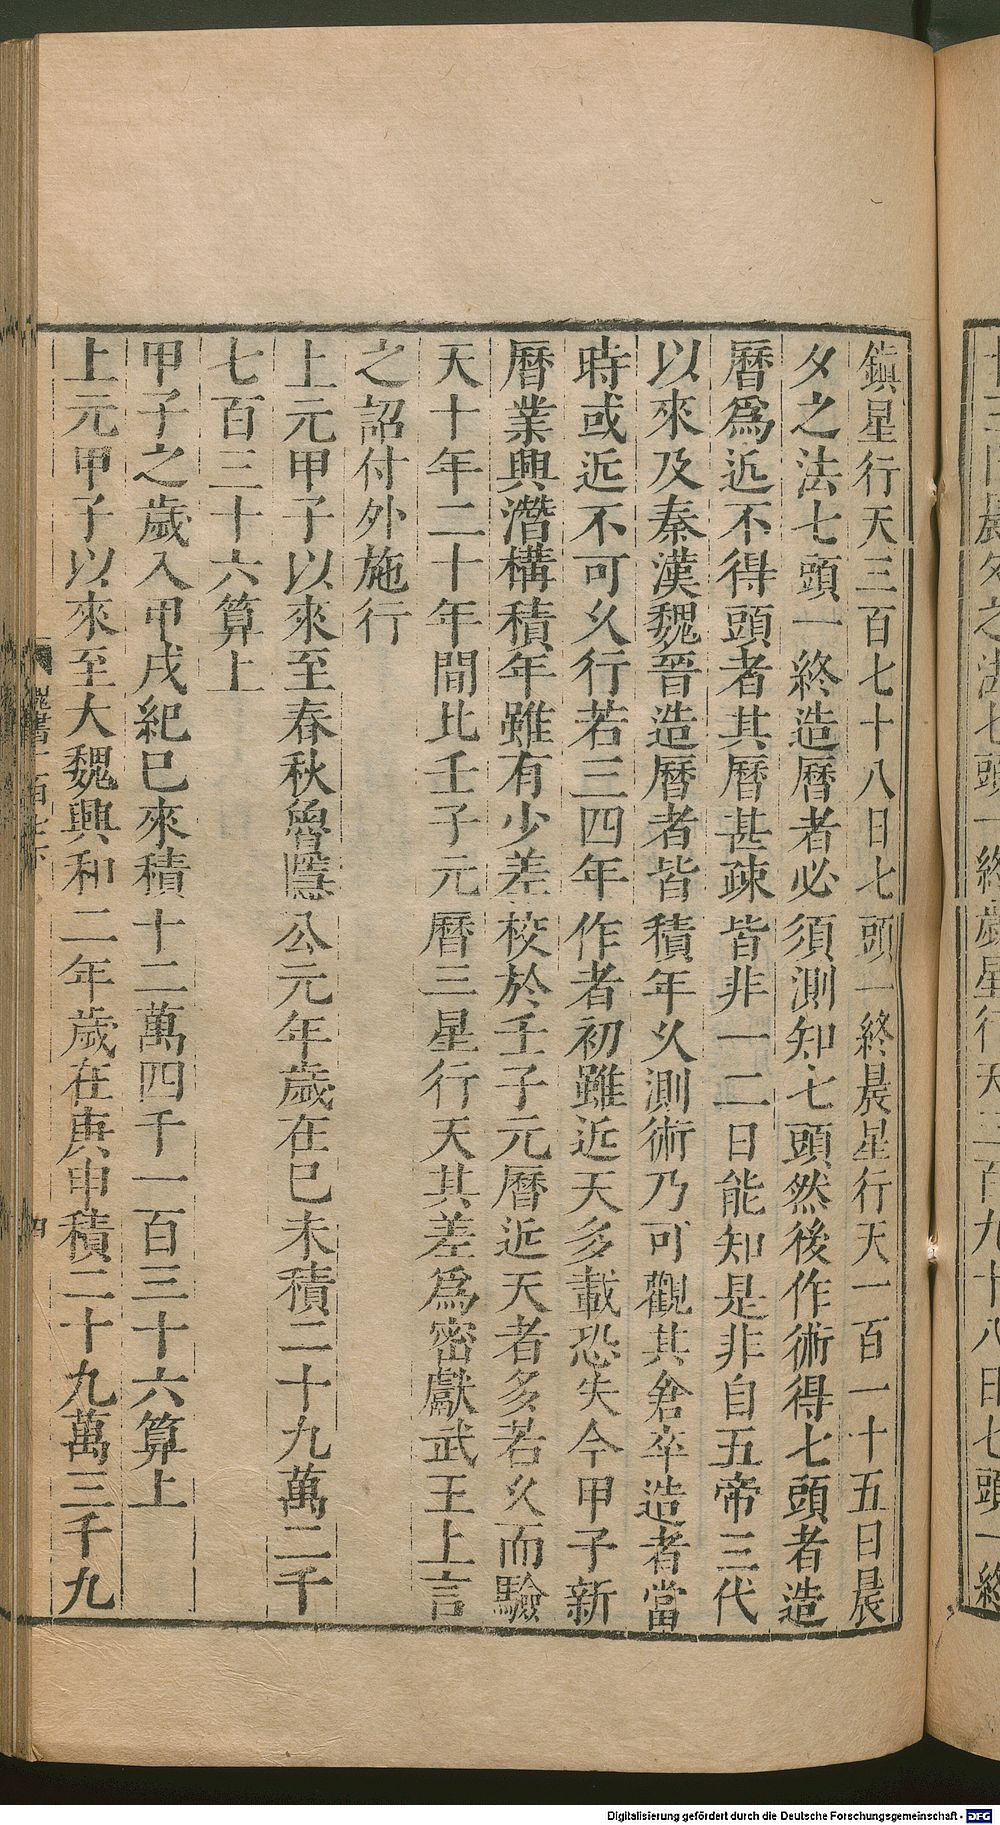 鎮星行天三百七十八日七頭一終晨星行天一百一十五日晨
夕之法七頭一終造曆者必須測知七頭然後作術得七頭者造
曆爲近不得頭者其曆甚疎皆非一二日能知是非自五帝三代
以來及秦漢魏晉造曆者皆積年久測術乃可觀其倉卒造者當
時或近不可久行若三四年作者初雖近天多載恐失今甲子新
曆業興潛構積年雖有少差校於壬子元曆近天者多若久而驗
天十年二十年間比壬子元曆三星行天其差爲密獻武王上言
之詔付外施行
上元甲子以來至春秋魯隱公元年歲在巳未積二十九萬二千
七百三十六算上
甲子之歲入甲戌紀巳來積十二萬四千一百三十六算上
上元甲子以來至大魏興和二年歲在庚申積二十九萬三千九
魏書一百七下
四
夕之法七頭一終歲星行天三百九十八日七頭一終
Digitalisierung gefördert durch die Deutsche Forschungsgemeinschaft - DFG